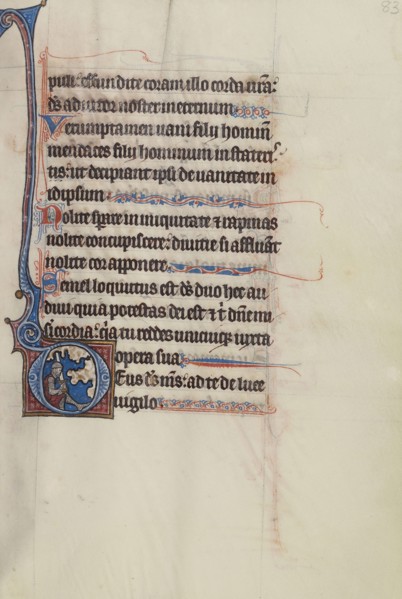 83
puli: effundite coram illo corda vr̄a:
ds̄ adiutor noster in eternum
Verumptamen uani filij hominū
mendaces filij hominum in stateris
: ut decipiant ipsi de uanitate in
idipsum
Nolite sperare in iniquitate ⁊ rapinas
nolite concupiscere: diuitie si affluāt
nolite cor apponere
Semel loquutus est ds̄ duo hec au
diui quia potestas dei est ⁊ t̄ dn̄e mi
sericordia: q̄a tu reddes unicuiq; iuxta
opera sua
Deus ds̄ ms̄: ad te de luce
uigilo